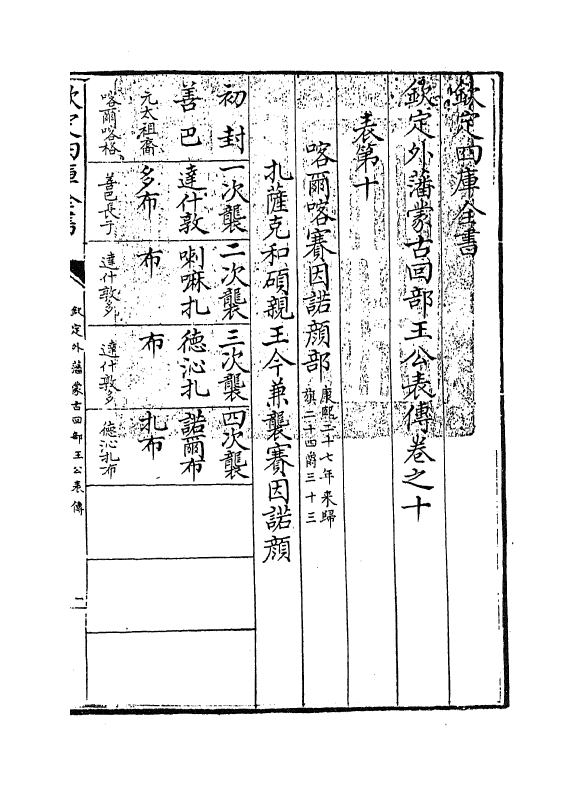 欽定四庫全書
欽定外藩蒙古回部王公表傳卷之十
表第十
喀爾喀賽因諾顔部
康熙二十七年来歸
旗二十四爵三十三
扎薩克和碩親王今兼襲賽因諾顔
初封
善巴
元太祖裔
喀爾喀格
一次襲
達什敦
多布
善巴長子
二次襲
喇嘛扎
布
達什敦多
三次襲
徳沁扎
布
達什敦多
四次襲
諾爾布
扎布
徳沁扎布
欽定四庫全書
欽定外藩蒙古回部王公表傳